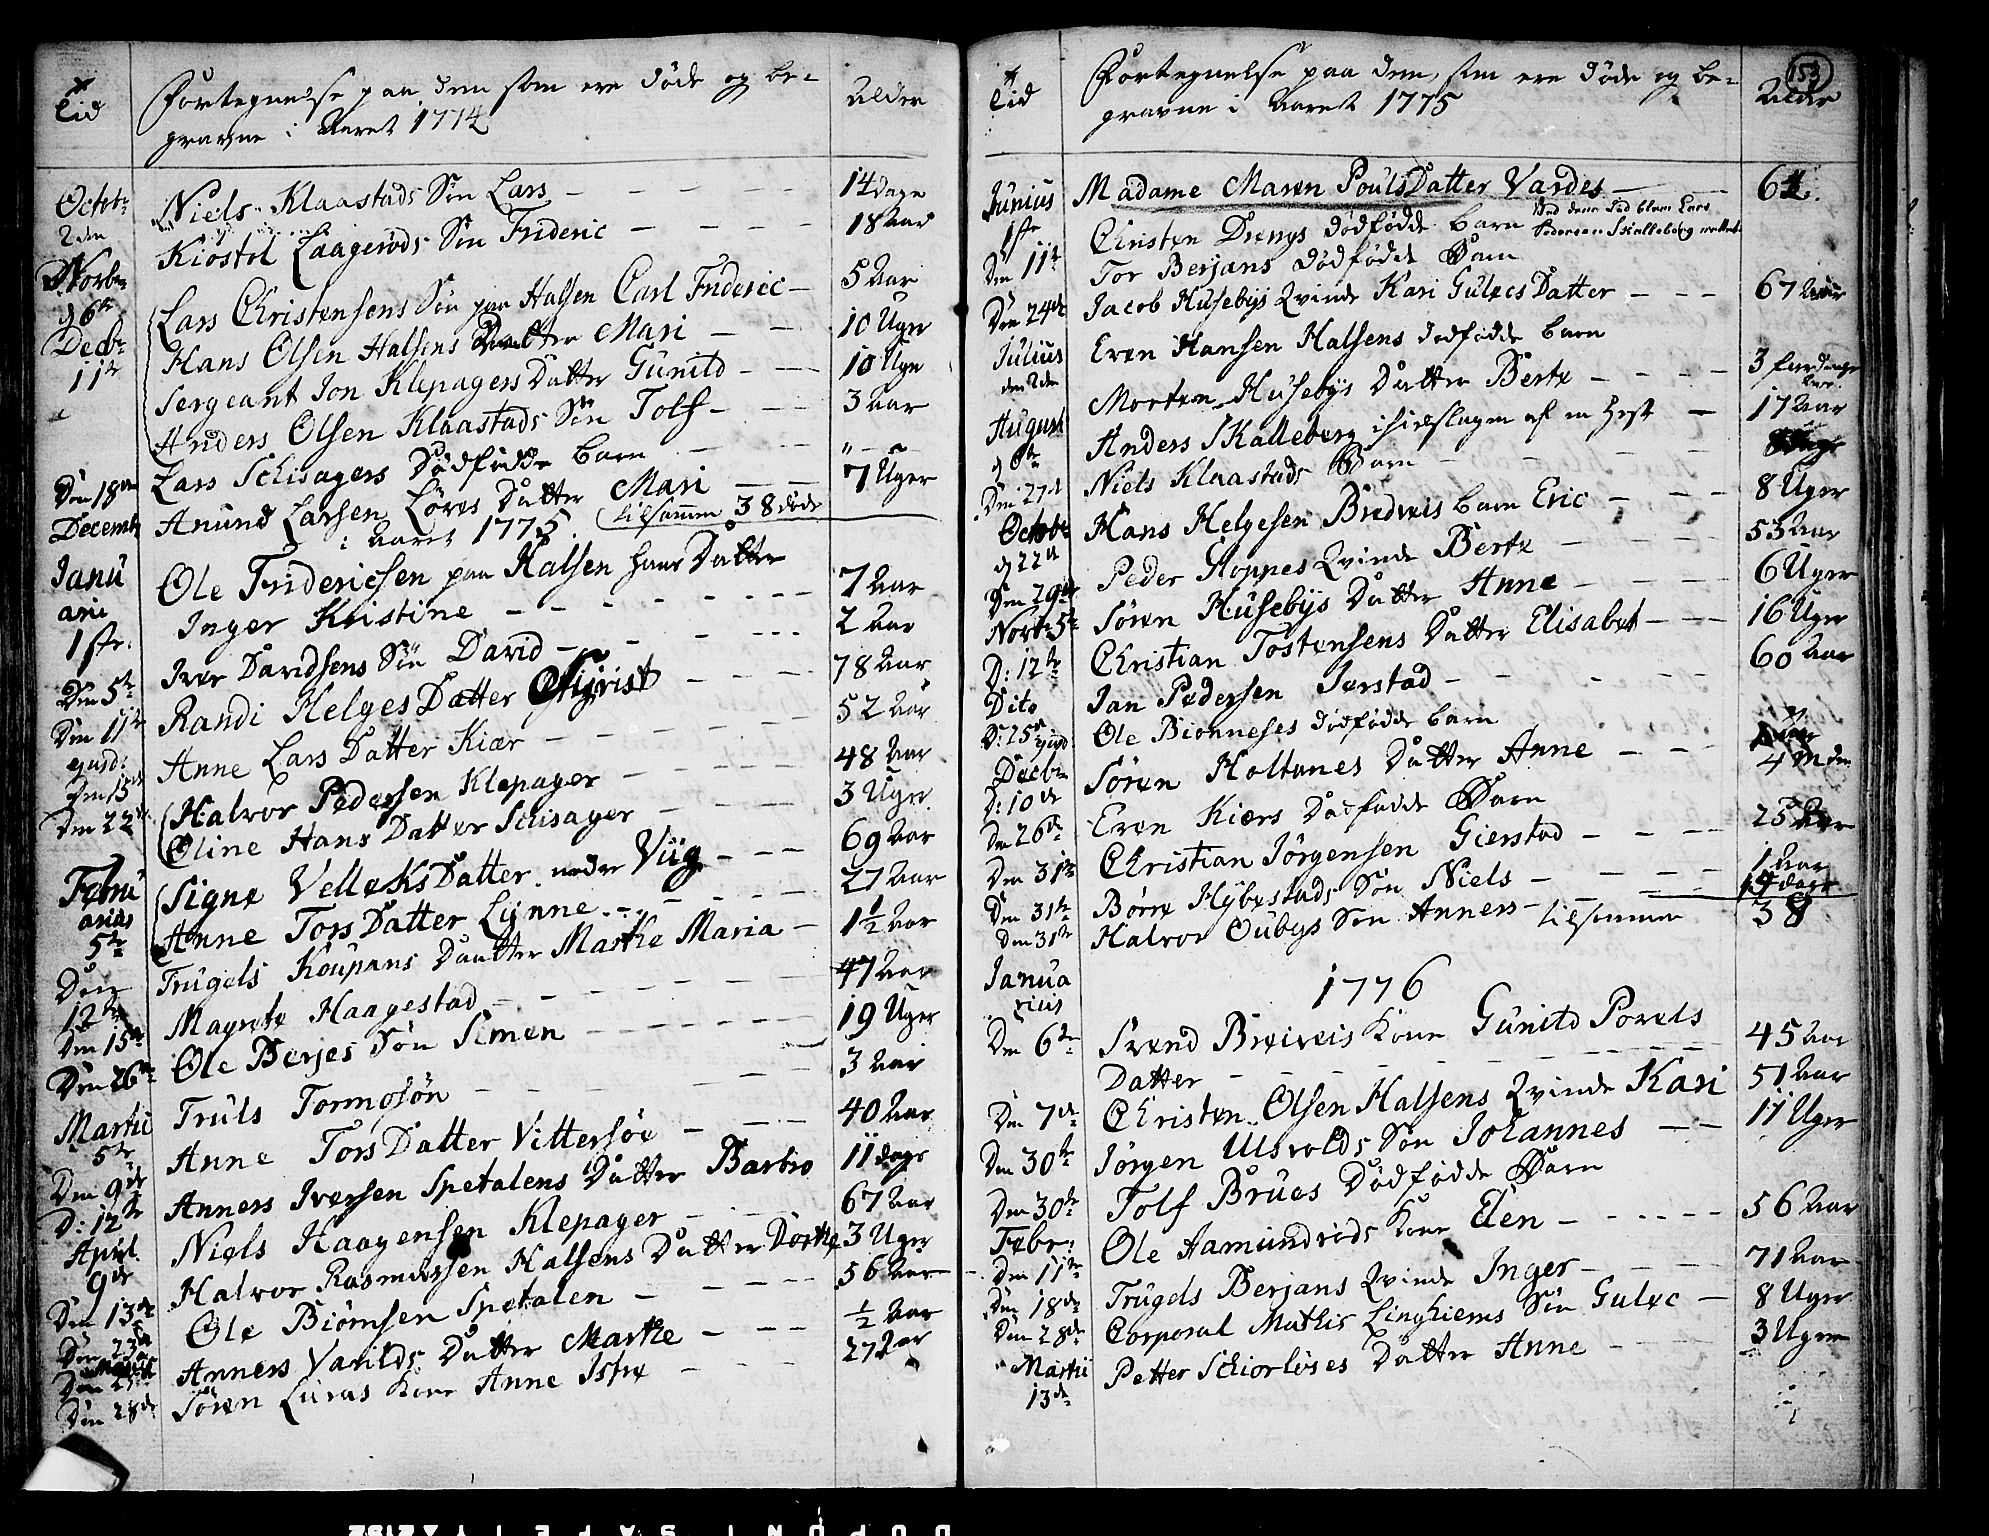 Tid
Fortegnelse paa dem som ere døde og be-
gravne i Aaret 1774
Alder
Octobr
2den
Niels Klaastads Søn Lars - - - - - 14 dage
Kiøstol Laagerøds Søn Frideric - - - - 18 Aar
Novbr
d 6te
Lars Christensens Søn paa Halsen Carl Frideric - 5 Aar
Decbr
11te
Hans Olsen Halsens Datter Mari - - - 10 Uger
Sergeant Jon Klepagers Datter Gunild - - - 10 Uger
Anders Olsen Klaastads Søn Tolf - - - 3 Aar
Den 18de
Lars Schisagers Dødfødde Barn - - - " - "
Decembr
Anund Larsen Løves Datter Mari - - 7 Uger
i Aaret 1775. tilsammen 38 døde
Janu
arii
1ste.
Ole Fridericsen paa Halsen hans Datter
Inger Kristine - - - - - - - 7 Aar
Iver Davidsens Søn David - - - - 2 Aar
Den 5te
Randi Helges Datter Sigrist - - - 78 Aar
Den 11te
Anne Lars Datter Kiær - - - - - 52 Aar
ejusd:
Den 15de
Halvor Pedersen Klepager - - - - 48 Aar
Den 22de
Oline Hans Datter Schisager - - - - 3 Uger
Febru
arius
5te
Signe Velleks Datter nedre Viig - - - 69 Aar
Anne Tors Datter Lynne - - - - - 27 Aar
Den
12te
Trugels Koupans Datter Marthe Maria - 1½ Aar
Den 15de
Magrete Haagestad - - - - - - 47 Aar
Den 26de
Ole Berjes Søn Simen - - - - - - 19 Uger
Truls Tormosøn - - - - - 3 Aar
Martii
5te
Anne Tors Datter Vittersøe - - - 40 Aar
Den 9de
Anners Iversen Spetalens Datter Barbro 11 dage
D: 12te
Niels Haagensen Klepager - - - - 67 Aar
April
9de
Halvor Rasmussen Halsens Datter Dorthe 3 Uger
Den 13de
Ole Biørnsen Spetalen - - - - - 56 Aar
Den 23de
Anners Varilds Datter Marthe - - - ½ Aar
Den 28de
Søren Luras Kone Anne - - - 27 Aar
153
Tid
Fortegnelse paa dem, som ere døde og be-
gravne i Aaret 1775
Alder
Junius
1ste
Madame Maren Pouls Datter Vardes - - 64.
Christen Drengs dødfødde Barn
Den 11te
Tor Berjans dødfødde Barn
Den 24de
Jacob Husebys Qvinde Kari Gulecs Datter - - - 67 Aar
Julius
den 2den
Even Hansen Halsens dødfødde Barn
Morten Husebys Datter Berte - - - - 3
August
d 6te
Anders Skalleberg ihielslagen af en Hest - 17 Aar
Den 27de
Niels Klaastads Barn - - - - - -
Octobr
d 22de
Hans Helgesen Bredveis Barn Eric - - - 8 Uger
Den 29de
Peder Hoppes Qvinde Berte - - - - - 53 Aar
Novbr 5te
Søren Husebys Datter Anne - - - - 6 Uger
D: 12te
Christian Tostensens Datter Elisabet - - - 16 Uger
Dito
Jan Pedersen Jerstad - - - - - - 60 Aar
D: 25de
Ole Bionneses dødfødde Barn
Decbr
D: 10de
Søren Holtanes Datter Anne - - - 4 Mdr
Den 26de
Even Kiærs Dødfødde Barn
Den 31te
Christian Jørgensen Gierstad - - - - 25 Aar
Den 31te
Børre Hybestads Søn Niels - - - - 1 Aar
Den 31te
Halvor Oubys Søn Anners - 14 dage
tilsammen 38
1776
Janua
rius
Den 6te
Svend Breiveis Kone Gunild Povels
Datter - - - - - - - - 45 Aar
Den 7de
Christen Olsen Halsens Qvinde Kari 51 Aar
Den 30te
Jørgen Ulsvolds Søn Johannes - - 11 Uger
Den 30te
Tolf Brues Dødfødde Barn
Febr:
Den 11te
Ole Aamundrøds Kone Elen - - - - - 56 Aar
Den 18de
Trugels Berjans Qvinde Inger - - - - 71 Aar
Den 28de
Corporal Mathis Linghiems Søn Gulec - 8 Uger
Martii
13de
Petter Schiorløses Datter Anne - - - 3 Uger